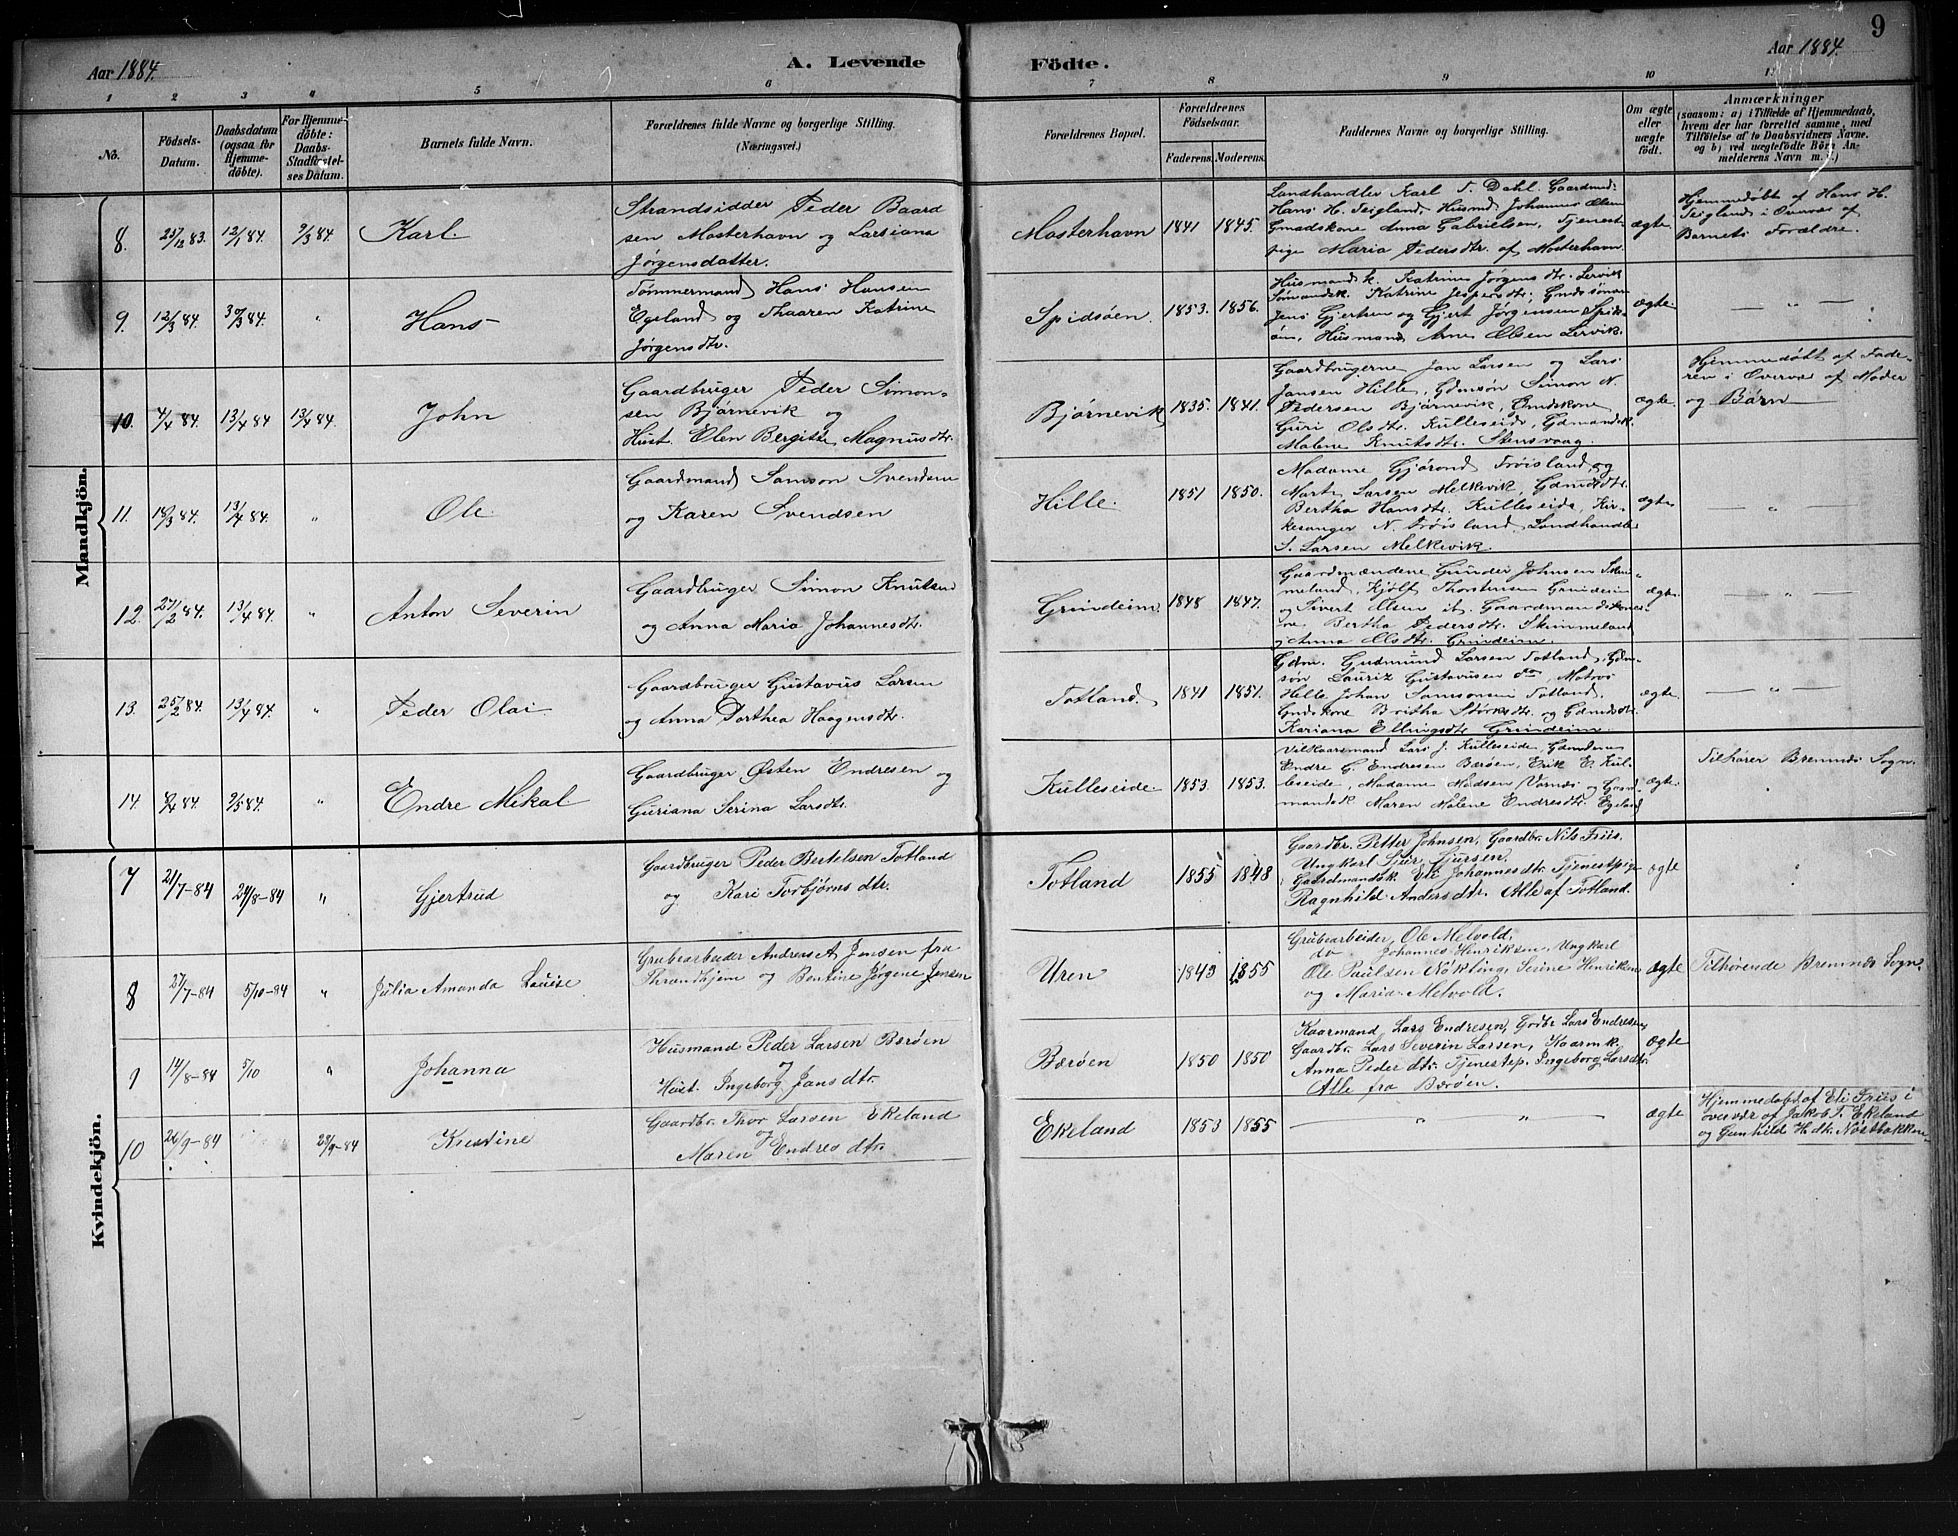 9
Aar 1884.
A. Levende Födte.
Aar 1884.
1 2 3 4 5 6 7 8 9 10 11
No.
Födsels-
Datum.
Daabsdatum
(ogsaa for
Hjemme-
döbte).
For Hjemme-
döbte:
Daabs-
Stadfæstel-
ses Datum.
Barnets fulde Navn.
Forældrenes fulde Navne og borgerlige Stilling.
(Næringsvei.)
Forældrenes Bopæl.
Forældrenes
Födselsaar.
Faderens. Moderens.
Faddernes Navne og borgerlige Stilling.
Om ægte
eller
uægte
födt.
Anmærkninger
(saasom: a) i Tilfælde af Hjemmedaab,
hvem der har forrettet samme, med
Tilföielse af to Daabsvidners Navne.
og b) ved uægtefödte Börn An-
melderens Navn m. v.)
Mandkjön.
8. 25/12 83. 12/1 84. 9/3 84. Karl.
Strandsidder Peder Baard
sen Mosterhavn og Larsiana
Jørgensdatter.
Mosterhavn 1841 1845.
Landhandler Karl T. Dahl. Gaardmd:
Hans H. Teigland, Husmd Johannes Olsen
Gmadskone Anna Gabrielsen, Tjenest-
pige Maria Pedersdtr. af Mosterhavn.
ægte.
Hjemmedøbt af Hans H.
Teigland i Overvær af
Barnets Forældre.
9. 12/3 84. 30/3 84. " Hans
Tømmermand Hans Hansen
Egeland og Thaaren Katrine
Jørgensdtr.
Spidsöen. 1853. 1856.
Husmandsk. Katrine Jørgensdtr. Lervik
Sømandsk. Katrine Jespersdtr., Gmdssönen
Jens Gjertsen og Gjert Jörgensen Spids-
öen, Husmand Arne Olsen Lervik.
ægte.
— " —
10. 4/4 84. 13/4 84 13/4 84. John
Gaardbruger Peder Simon-
sen Bjørnevik og
Hust. Elen Bergitte Magnusdtr.
Bjørnevik 1835. 1841.
Gaardbrugerne Jan Larsen og Lars
Jansen Hille, Gdmsøn Simon N.
Pedersen Bjørnevik, Gmdskone
Guri Olsdtr. Kulleseide, Gdmandsk.
Malene Knutsdtr. Stensvaag.
ægte.
Hjemmedøbt af Fade-
ren i Overvær af Moder
og Børn
11. 18/3 84. 13/4 84. " Ole
Gaardmand Samson Svendsen
og Karen Svendsen
Hille. 1851 1850.
Madame Gjörond Tröisland og
Marta Larsen Melkevik, Gdmdsdtr.
Bertha Hansdtr. Kulleseide, Kir-
kesanger N. Tröisland, Landhandler
S. Larsen Melkevik.
ægte
— " —
12. 27/2 84. 13/4 84. " Anton Severin
Gaardbruger Simon Knutsen
og Anna Maria Johannesdtr.
Grindeim 1848 1847.
Gaardmændene Gunder Johnsen Skim-
meland, Kjölf Thorstensen Grindeim
og Sivert Olsen ib. Gaardmandskoner-
ne Bertha Pedersdtr. Skimmeland
og Anna Olsdtr. Grindeim.
ægte.
— " —
13. 25/2 84. 13/4 84. " Peder Olai
Gaardbruger Gustavus Larsen
og Anna Dorthea Haagensdtr.
Totland. 1841 1851.
Gdm. Gudmund Larsen Totland, Gdm-
søn Lauriz Gustavusen do, Matros
Helle Johan Samsonsen Totland,
Gmdskone Britha Størksdtr. og Gdmdsdtr.
Kariana Ellingsdtr. Grindeim.
ægte.
— " —
14. 8/4 84. 9/5 84. " Endre Mikal
Gaardbruger Østen Endresen og
Guriana Serina Larsdtr.
Kulleseide 1853. 1853.
Vilkaarsmand Lars J. Kulleseide, Gdmdene
Endre G. Endresen Bærøen, Erik E. Kul-
leseide, Madame Madsen Varnes og Gaard
mandsk. Maren Malene Endresdtr. Egeland
ægte.
Tilhører Bremnæs Sogn.
Kvindekjön.
7 21/7-84 24/8-84 " Gjertrud
Gaardbruger Peder Bertelsen Totland
og Kari Torbjörns dtr.
Totland 1855 1848
Gaardbr. Petter Johnsen, Gaardbr. Nils Friis.
Ungkarl Sjur Sjursen.
Gaardmandsk. Eli Johannesdtr. Tjenestpige
Ragnhild Andersdtr. Alle af Totland.
ægte
8 27/7-84 5/10-84 " Julia Amanda Louise
Grubearbeider Andreas A. Jensen fra
Thrandhjem og Bentine Jørgene Jensen
Uren 1843 1855
Grubearbeider Ole Melvold,
do Johannes Henriksen, Ungkarl
Ole Paulsen Nökling, Serine Henriksen
og Maria Melvold.
ægte
Tilhørende Bremnæs Sogn.
9 14/8-84 5/10 " Johanna
Husmand Peder Larsen Bærøen
og
Hust. Ingeborg Jans dtr.
Bærøen 1850 1850
Kaarmand Lars Endresen, Gdbr Lars Endresen,
Gaardbr. Lars Severin Larsen, Kaarmk.
Anna Peder dtr. Tjenestep. Ingeborg Larsdtr.
Alle fra Bærøen.
ægte
10 26/9-84 28/9-84 Kristine
Gaardbr. Thor Larsen Ekeland
og
Maren Endres dtr.
Ekeland 1853 1855
— " " —
ægte
Hjemmedøbt af Eli Friis i
overvær af Jakob T. Ekeland
og Gunhild H. dtr. Nöstbakken